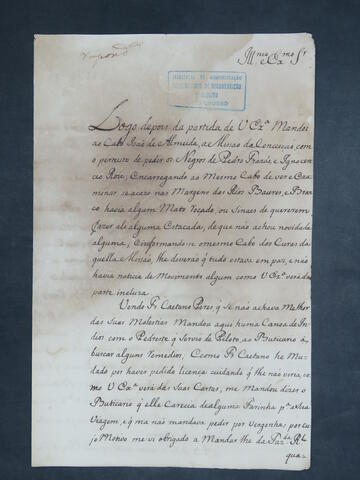 Illmo e Exmo Sr
Logo depois da partida de V Exª Mandei
ao Cabo Joaõ de Almeida, a Missaõ da Conceiçaõ com
o pretexto de pedir os Negros de Pedro Frarós e Igna
cio Roiz, Encarregando ao Mesmo Cabo de ver e Exa
minar se acazo nas Margens dos Rios Baures, e Bran
co havia algum Mato Roçado, ou Sinaes de quererem
fazer ali alguma Estacada, de que naõ achou novidade
alguma; Confirmando-se o mesmo Cabo dos Curas da
quella Missaõ, lhe disseraõ q' tudo estava em paz, e naõ
havia noticia de Movimento algum como V Exª verá da
parte incluza.
Vendo Fr Caetano Peres q' Se naõ achava Melhor
das Suas Molestias Mandou aqui huma Canoa de In
dios com o Pedreste q' Servio de Piloto, ao Buticario a
buscar alguns remedios, e como Fr Caetano he Mu
dado por haver pedido licença cuidando q' lhe naõ viria, co
mo V Exª verá das Suas Cartas, me Mandou dizer o
Buticario q' elle Carecia de alguma Farinha pª a Sua
Viagem, e q' ma naõ mandava pedir por Vergonha; por cu
jo Motivo me vi obrigado a Mandar lhe da Fazdª Rl
qua=